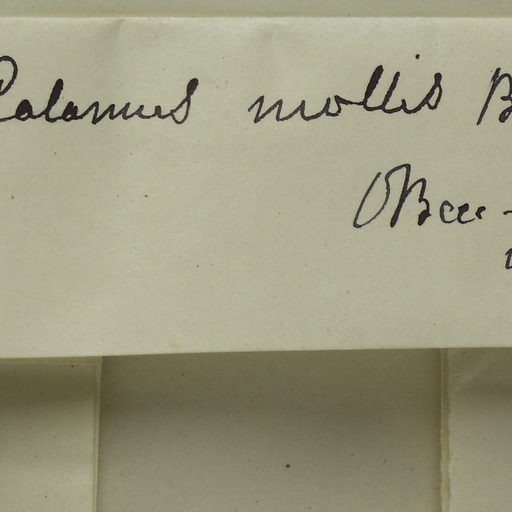 Calamus mollis B
OBecc-